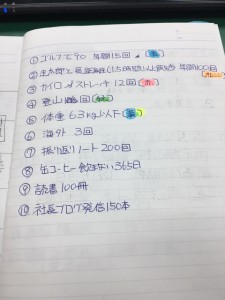 ① ゴルフで90 年間15回
② 長距離(1.5時間)以上 年間100回
③ カイロ ストレッチ 12回
④ 登山 回
⑤ 体重 63kg以下
⑥ 海外 3回
⑦ 振り返りノート 200回
⑧ 缶コーヒー飲まない365日
⑨ 読書100冊
⑩ 社長ブログ発信150本